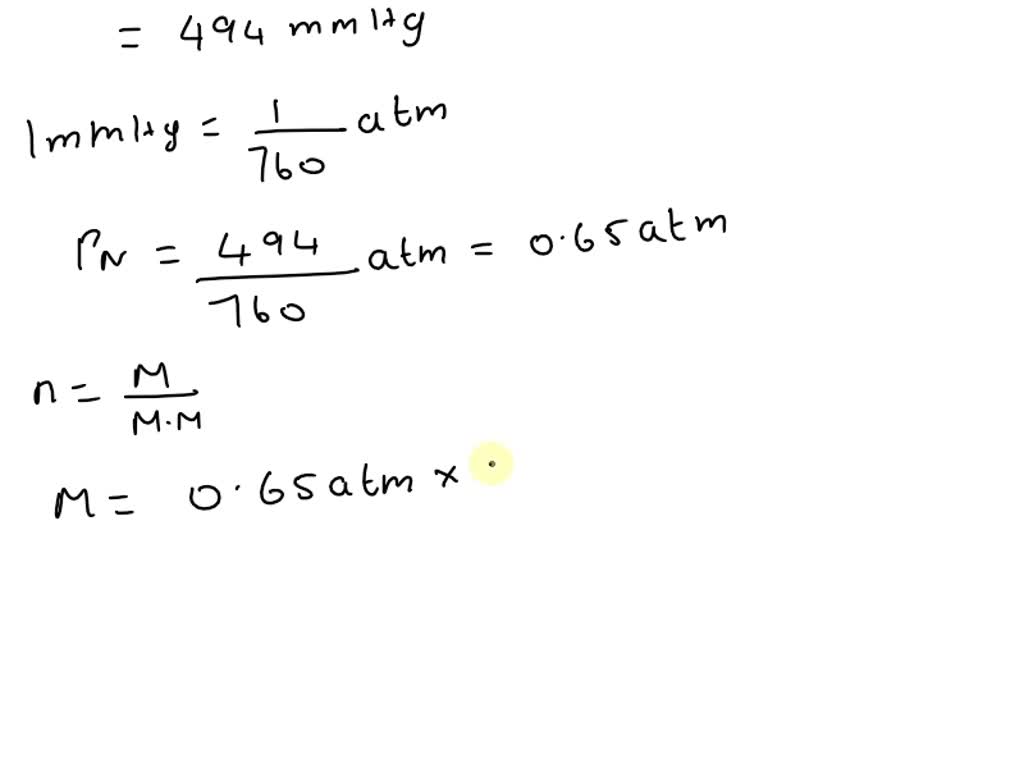 = 494 mmHg
1mmHg = 1/760 atm
PN = 494/760 atm = 0.65 atm
n = M/M.M
M = 0.65 atm ×